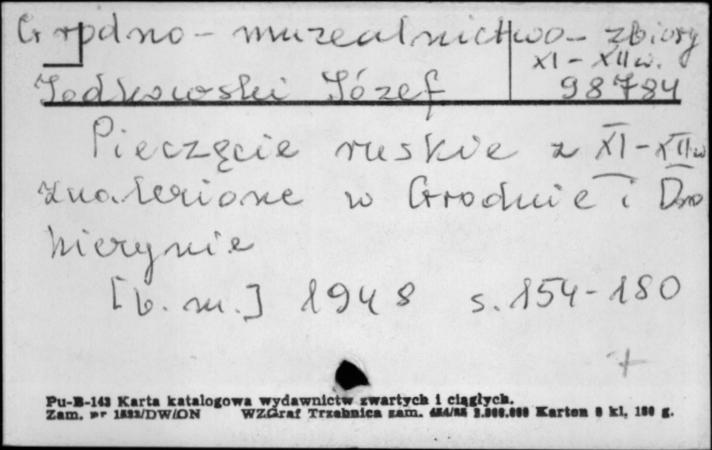 Grodno - muzealnictwo - zbiory
XI - XII w.
Jodkowski Józef 98784
Pieczęcie ruskie z XI - XII w
znalezione w Grodnie i Dro
hiczynie
[b. m.] 1948 s. 154-180
+
Pu-B-143 Karta katalogowa wydawnictw zwartych i ciągłych.
Zam. nr /DW/ON WZGraf Trzebnica zam. Karton kl, g.